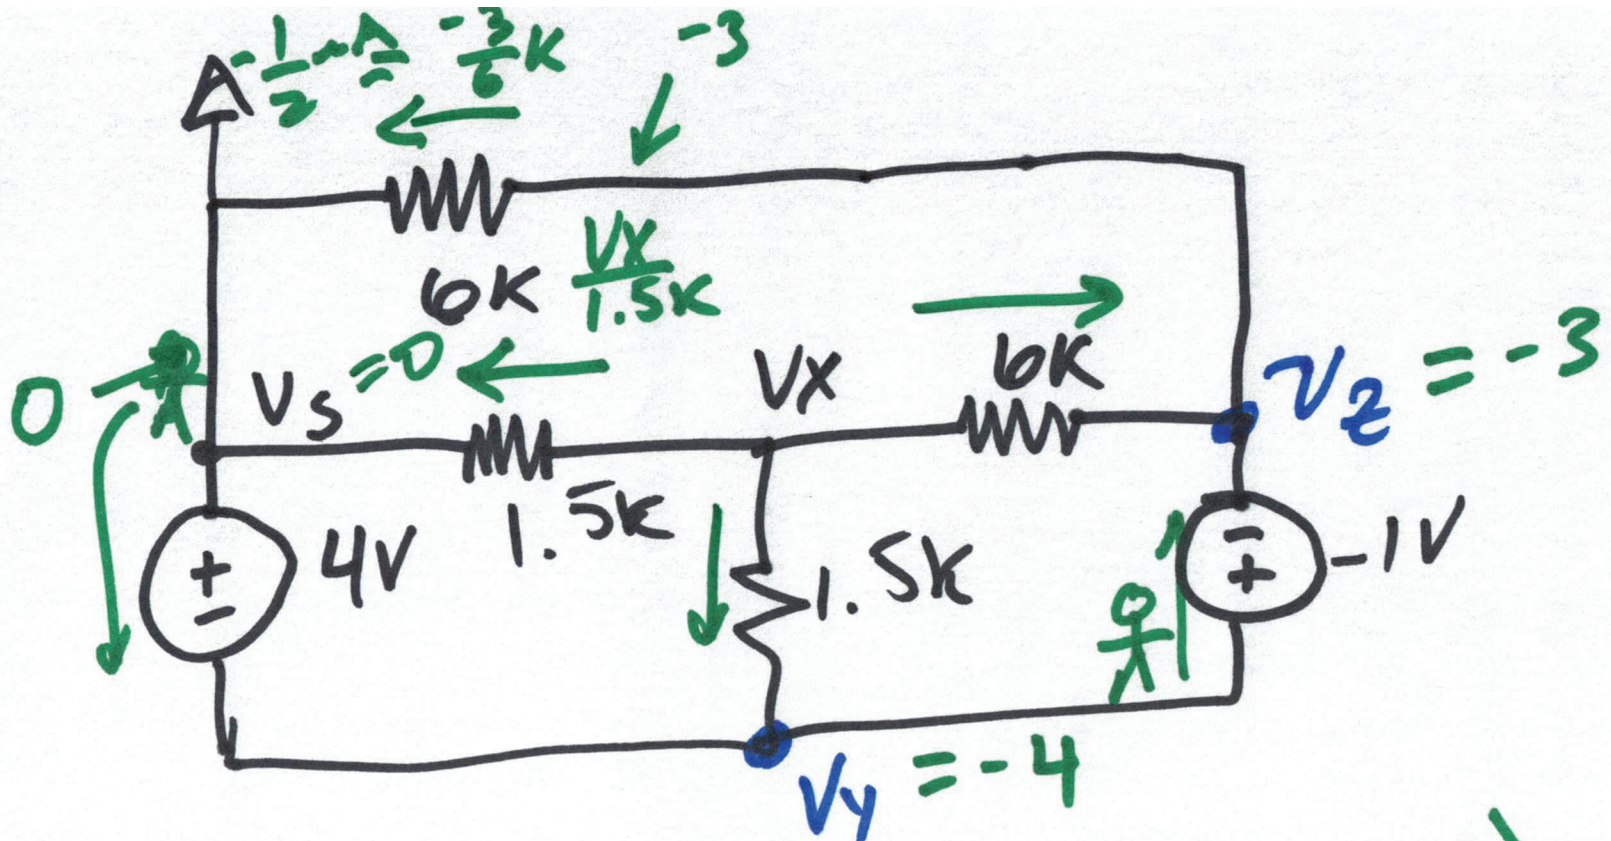 -1/2 mA -3/6K -3
6K VX/1.5K
0 VS =0 VX 6K VZ = -3
+ - 4V 1.5K 1.5K - + -1V
VY = -4